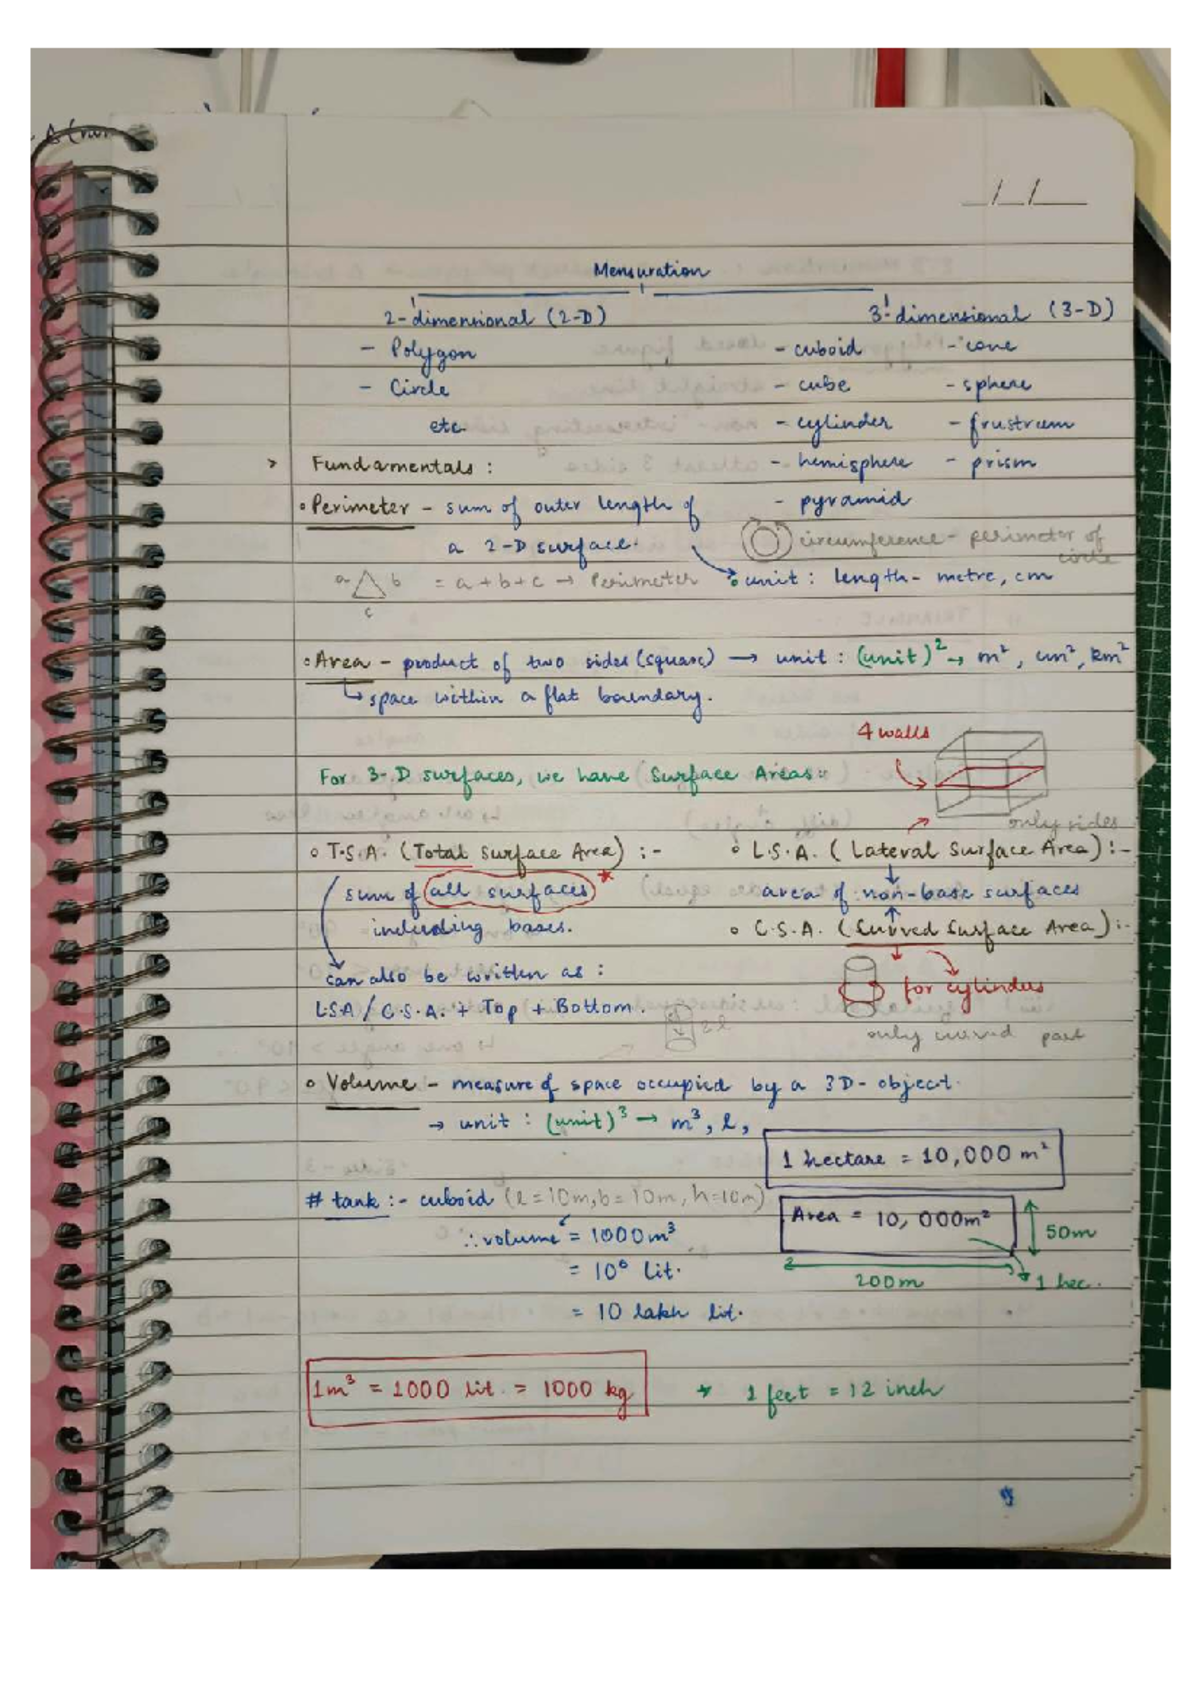 Mensuration
2-dimensional (2-D)
3-dimensional (3-D)
- Polygon
- cuboid
- cone
- Circle
- cube
- sphere
etc.
- cylinder
- frustrum
> Fundamentals :
- hemisphere
- prism
∘ Perimeter - sum of outer length of
- pyramid
a 2-D surface.
circumference - perimeter of
circle
a b = a + b + c → Perimeter
∘ unit : length - metre, cm
c
∘ Area - product of two sides (square) → unit : (unit)² → m², cm², km²
↳ space within a flat boundary.
4 walls
For 3-D surfaces, we have Surface Areas :
only sides
∘ T.S.A. (Total Surface Area) :-
∘ L.S.A. (Lateral Surface Area) :-
sum of all surfaces *
area of non-base surfaces
including bases.
∘ C.S.A. (Curved Surface Area) :-
can also be written as :
for cylinders
L.S.A / C.S.A. + Top + Bottom.
only curved part
∘ Volume - measure of space occupied by a 3D-object.
→ unit : (unit)³ → m³, l,
1 hectare = 10,000 m²
# tank :- cuboid (l = 10m, b = 10m, h = 10m)
Area = 10,000m²
50m
∴ volume = 1000m³
= 10⁶ lit.
200m
1 hec.
= 10 lakh lit.
1m³ = 1000 lit. = 1000 kg
* 1 feet = 12 inch